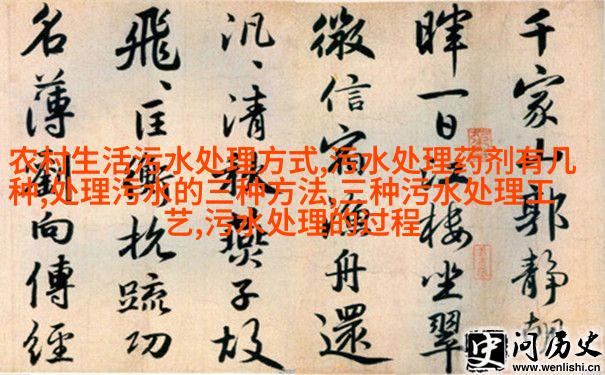 千家山郭靜朝
暉一日江樓坐翠
微信宿漁舟還
汎〻清秋燕子故
飛〻匡衡抗疏功
名薄劉向傳經
农村生活污水处理方式,污水处理药剂有几
种,处理污水的三种方法,三种污水处理工
艺,污水处理的过程
史 问历史
www.wenlishi.cn